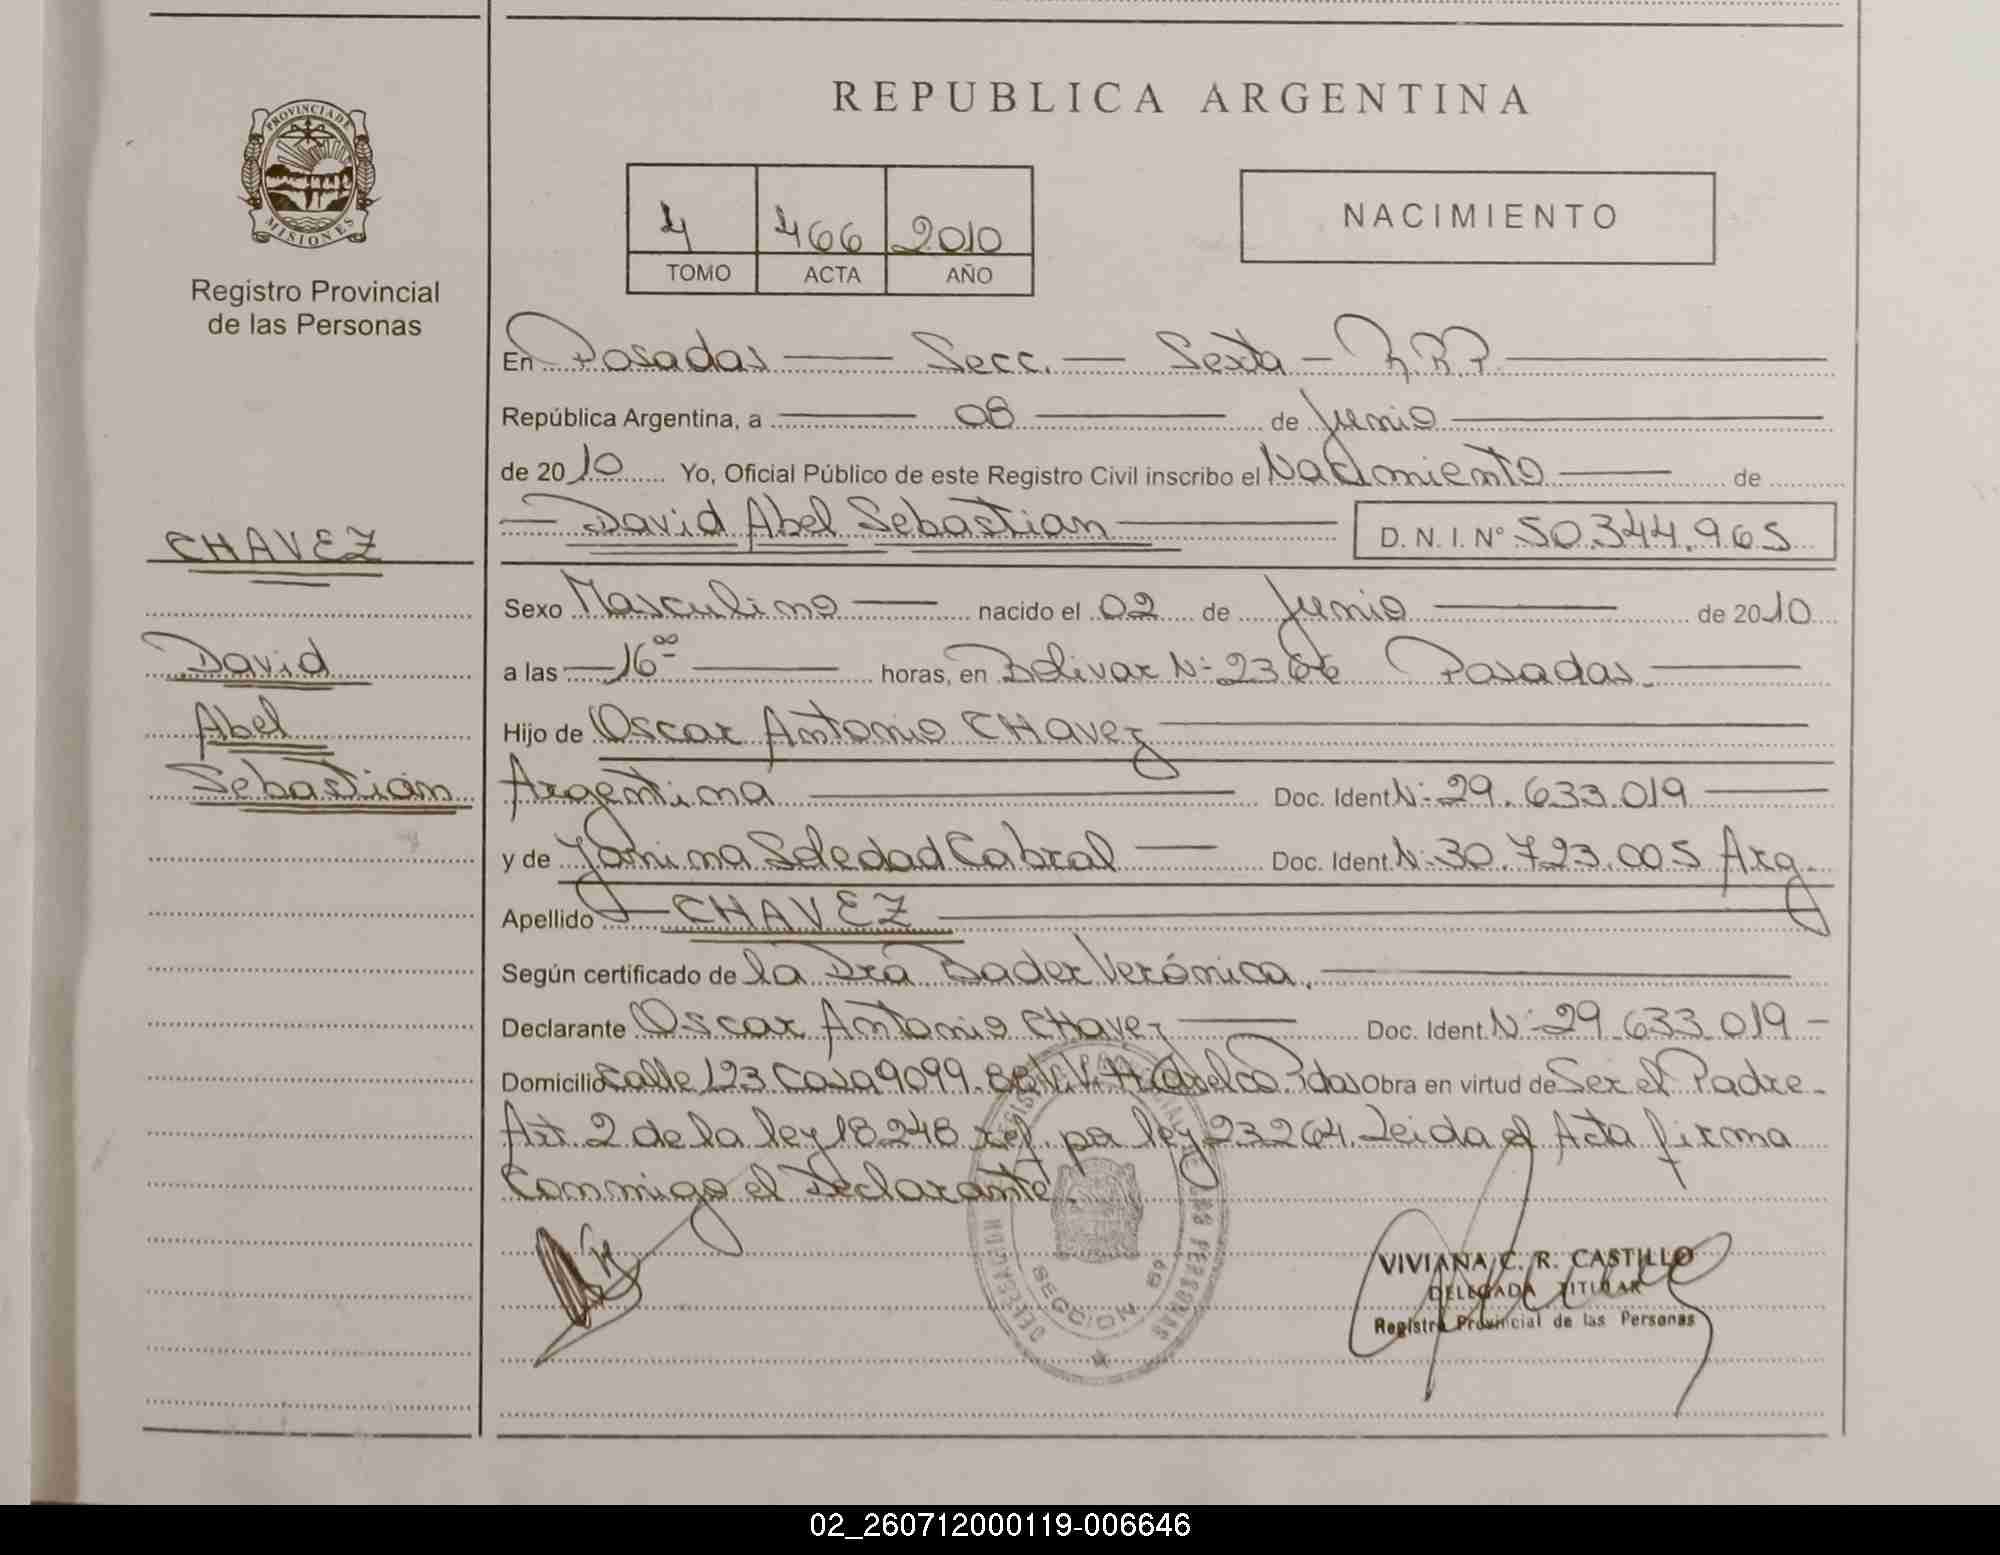 REPUBLICA ARGENTINA
PROVINCIA DE MISIONES
Registro Provincial
de las Personas
4 466 2010
TOMO ACTA AÑO
NACIMIENTO
En Posadas Secc. Sexta - R.R.P.
República Argentina, a 08 de Junio
de 2010 Yo, Oficial Público de este Registro Civil inscribo el Nacimiento de
David Abel Sebastian D. N. I. Nº 50.344.965
CHAVEZ
David
Abel
Sebastián
Sexo Masculino nacido el 02 de Junio de 2010
a las 16 00 horas, en Bolivar Nº 2366 Posadas.
Hijo de Oscar Antonio CHavez
Argentina Doc. Ident. Nº 29.633.019
y de Yanina Soledad Cabral Doc. Ident. Nº 30.723.005 Arg.
Apellido CHAVEZ
Según certificado de la Dra Bader Verónica.
Declarante Oscar Antonio CHavez Doc. Ident. Nº 29.633.019
Domicilio Calle 123 Casa 9099 Pdas Obra en virtud de Ser el Padre.
Art. 2 de la ley 18248 ref. por ley 23264. Leida el Acta firma
Conmigo el Declarante.
DELEGACION REGISTRO PROVINCIAL DE LAS PERSONAS
SECCION 6ª
VIVIANA C. R. CASTILLO
DELEGADA TITULAR
Registro Provincial de las Personas
02_260712000119-006646